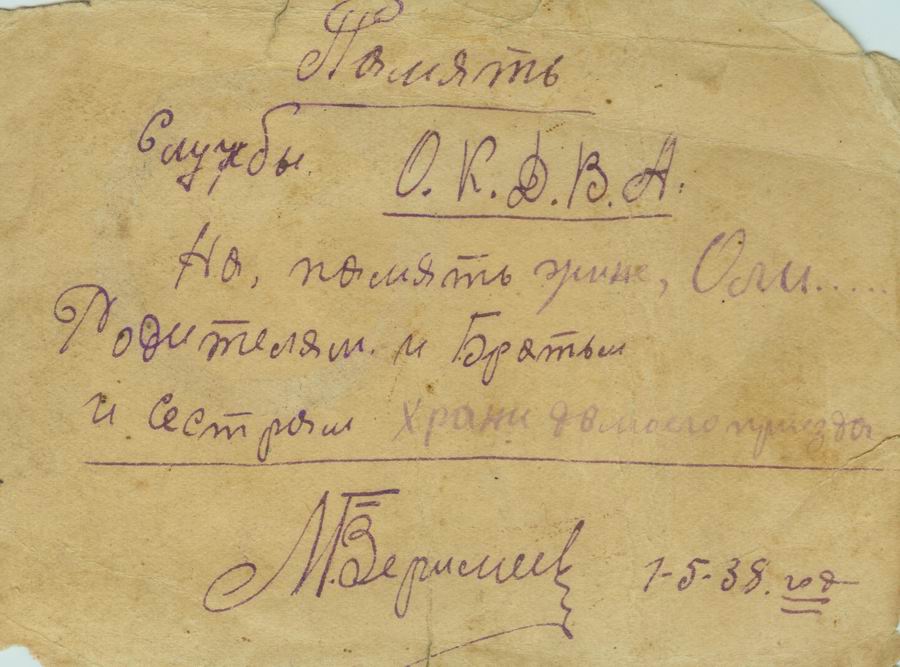 Память
Службы О.К.Д.В.А.
На, память жине, Оли.....
Родителям. и Братьм
и сестрам храни до моего приезда
1-5-38. год